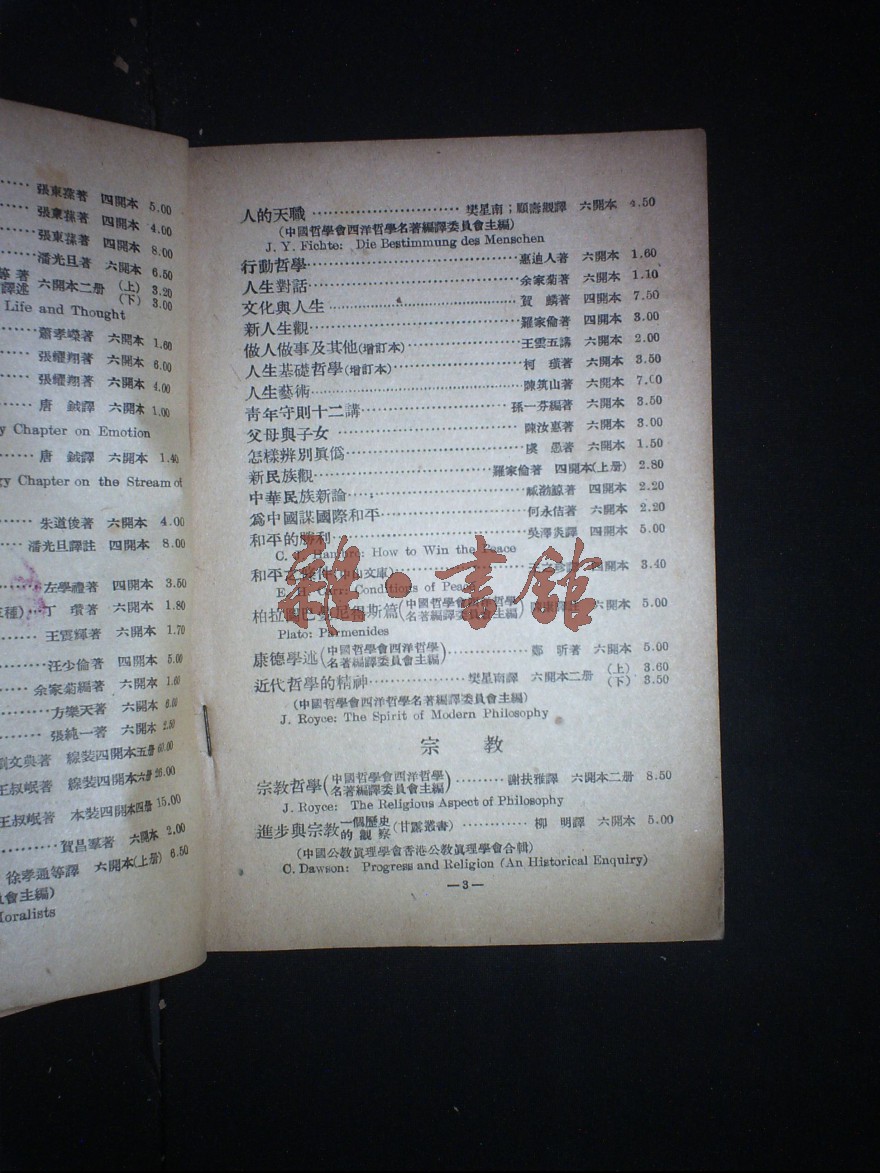 張東蓀著 四開本 5.00
張東蓀著 四開本 4.00
張東蓀著 四開本 8.00
潘光旦著 六開本 6.50
等著
譯述 六開本二册 (上) 3.20
(下) 3.00
Life and Thought
蕭孝嶸著 六開本 1.60
張耀翔著 六開本 6.00
張耀翔著 六開本 4.00
唐 鉞譯 六開本 1.00
Chapter on Emotion
唐 鉞譯 六開本 1.40
gy Chapter on the Stream of
朱道俊著 六開本 4.00
潘光旦譯註 四開本 8.00
左學禮著 四開本 3.50
種) 丁 瓚著 六開本 1.80
王震輝著 六開本 1.70
汪少倫著 四開本 5.00
余家菊編著 六開本 1.60
方樂天著 六開本 6.00
張純一著 六開本 2.50
劉文典著 線裝四開本五册 60.00
王叔岷著 線裝四開本六册 26.00
王叔岷著 本裝四開本四册 15.00
賀昌羣著 六開本 2.00
徐孝通等譯 六開本(上册) 6.50
會主編)
Moralists
人的天職 樊星南;顧壽觀譯 六開本 4.50
(中國哲學會西洋哲學名著編譯委員會主編)
J. Y. Fichte: Die Bestimmung des Menschen
行動哲學 惠迪人著 六開本 1.60
人生對話 余家菊著 六開本 1.10
文化與人生 賀 麟著 四開本 7.50
新人生觀 羅家倫著 四開本 3.00
做人做事及其他(增訂本) 王雲五講 六開本 2.00
人生基礎哲學(增訂本) 柯 璜著 六開本 3.50
人生藝術 陳筑山著 六開本 7.00
靑年守則十二講 孫一芬編著 六開本 3.50
父母與子女 陳汝惠著 六開本 3.00
怎樣辨別眞僞 虞 愚著 六開本 1.50
新民族觀 羅家倫著 四開本(上册) 2.80
中華民族新論 臧渤鯨著 四開本 2.20
爲中國謀國際和平 何永佶著 六開本 2.20
和平的勝利 吳澤炎譯 四開本 5.00
C. J. Hambro: How to Win the Peace
和平之條件(中山文庫) 王之珍譯 四開本 3.40
E. H. Carr: Conditions of Peace
柏拉圖巴曼尼得斯篇(中國哲學會西洋哲學名著編譯委員會主編) 陳康譯註 六開本 5.00
Plato: Parmenides
康德學述(中國哲學會西洋哲學名著編譯委員會主編) 鄭 昕著 六開本 5.00
近代哲學的精神 樊星南譯 六開本二册 (上) 3.60
(下) 3.50
(中國哲學會西洋哲學名著編譯委員會主編)
J. Royce: The Spirit of Modern Philosophy
宗 教
宗教哲學(中國哲學會西洋哲學名著編譯委員會主編) 謝扶雅譯 六開本二册 8.50
J. Royce: The Religious Aspect of Philosophy
進步與宗教一個歷史的觀察(甘露叢書) 柳 明譯 六開本 5.00
(中國公教眞理學會香港公教眞理學會合輯)
C. Dawson: Progress and Religion (An Historical Enquiry)
—3—
雜·書館